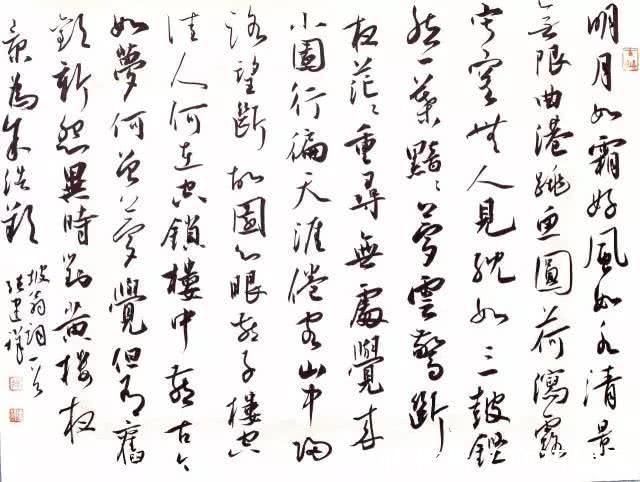 明月如霜好風如水清景
無限曲港跳魚圓荷瀉露
寂寞無人見紞如三鼓鏗
然一葉黯〻夢雲驚斷
夜茫〻重尋無處覺來
小園行徧天涯倦客山中歸
路望斷故園心眼燕子樓空
佳人何在空鎖樓中燕古今
如夢何曾夢覺但有舊
歡新怨異時對黃樓夜
景為余浩歎
坡翁詞一首
建祥